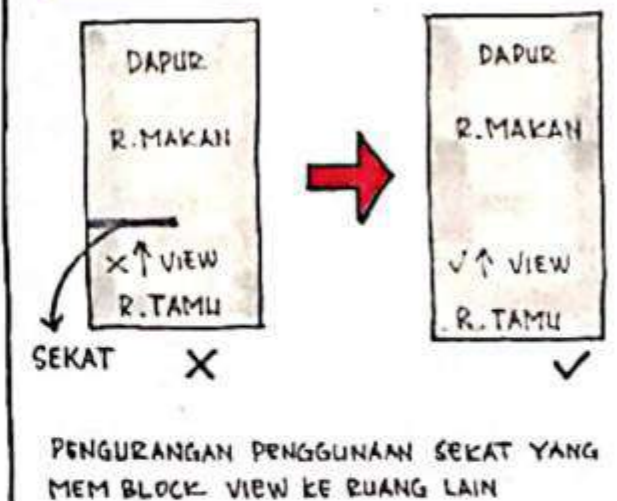 DAPUR
R.MAKAN
× ↑ VIEW
R.TAMU
SEKAT
×
DAPUR
R.MAKAN
✓ ↑ VIEW
R.TAMU
✓
PENGURANGAN PENGGUNAAN SEKAT YANG
MEM BLOCK VIEW KE RUANG LAIN